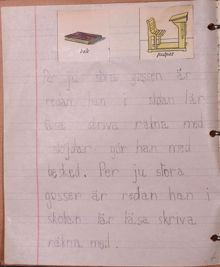 bok
pulpet
Per ju stora gossen är
redan han i skolan lär
läsa skriva räkna med
slöjdar gör han med
besked. Per ju stora
gossen är redan han i
skolan lär läsa skriva
räkna med.